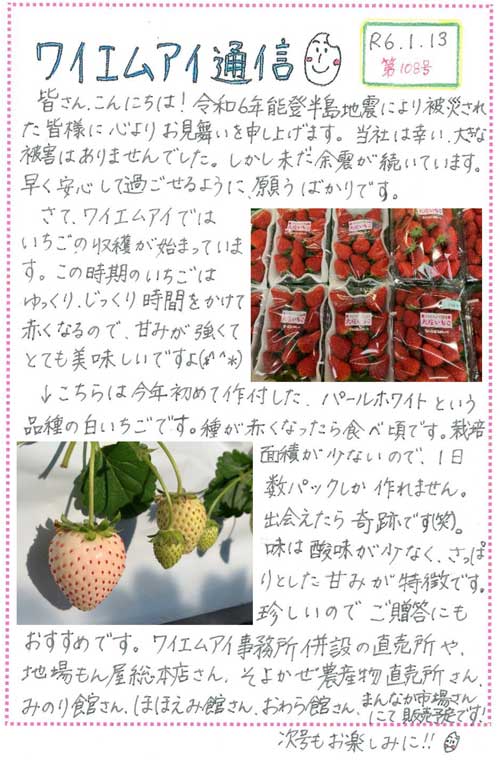 ワイエムアイ通信
R6.1.13
第108号
皆さん、こんにちは!令和6年能登半島地震により被災され
た皆様に心よりお見舞いを申し上げます。当社は幸い、大きな
被害はありませんでした。しかし未だ余震が続いています。
早く安心して過ごせるように、願うばかりです。
さて、ワイエムアイでは
いちごの収穫が始まっていま
す。この時期のいちごは
ゆっくり、じっくり時間をかけて
赤くなるので、甘みが強くて
とても美味しいですよ(*^^*)
↓こちらは今年初めて作付した、パールホワイトという
品種の白いちごです。種が赤くなったら食べ頃です。栽培
面積が少ないので、1日
数パックしか作れません。
出会えたら奇跡です(笑)。
味は酸味が少なく、さっぱ
りとした甘みが特徴です。
珍しいのでご贈答にも
おすすめです。ワイエムアイ事務所併設の直売所や、
地場もん屋総本店さん、そよかぜ農産物直売所さん、
みのり館さん、ほほえみ館さん、おわら館さん、まんなか市場さん
にて販売予定です!
次号もお楽しみに!!